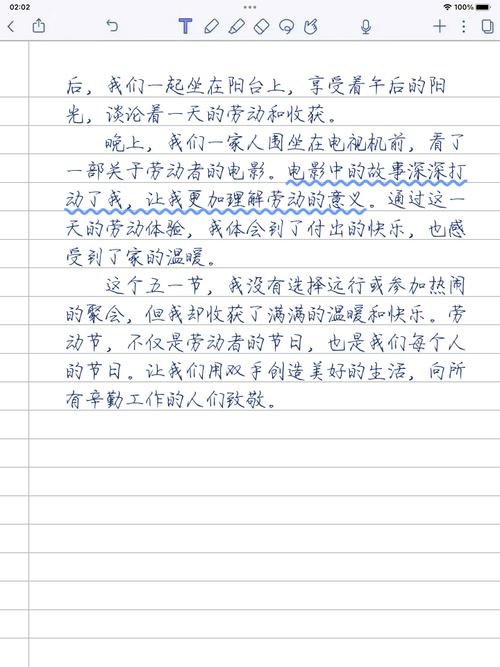 02:02
100%
后，我们一起坐在阳台上，享受着午后的阳
光，谈论着一天的劳动和收获。
晚上，我们一家人围坐在电视机前，看了
一部关于劳动者的电影。电影中的故事深深打
动了我，让我更加理解劳动的意义。通过这一
天的劳动体验，我体会到了付出的快乐，也感
受到了家的温暖。
这个五一节，我没有选择远行或参加热闹
的聚会，但我却收获了满满的温暖和快乐。劳
动节，不仅是劳动者的节日，也是我们每个人
的节日。让我们用双手创造美好的生活，向所
有辛勤工作的人们致敬。